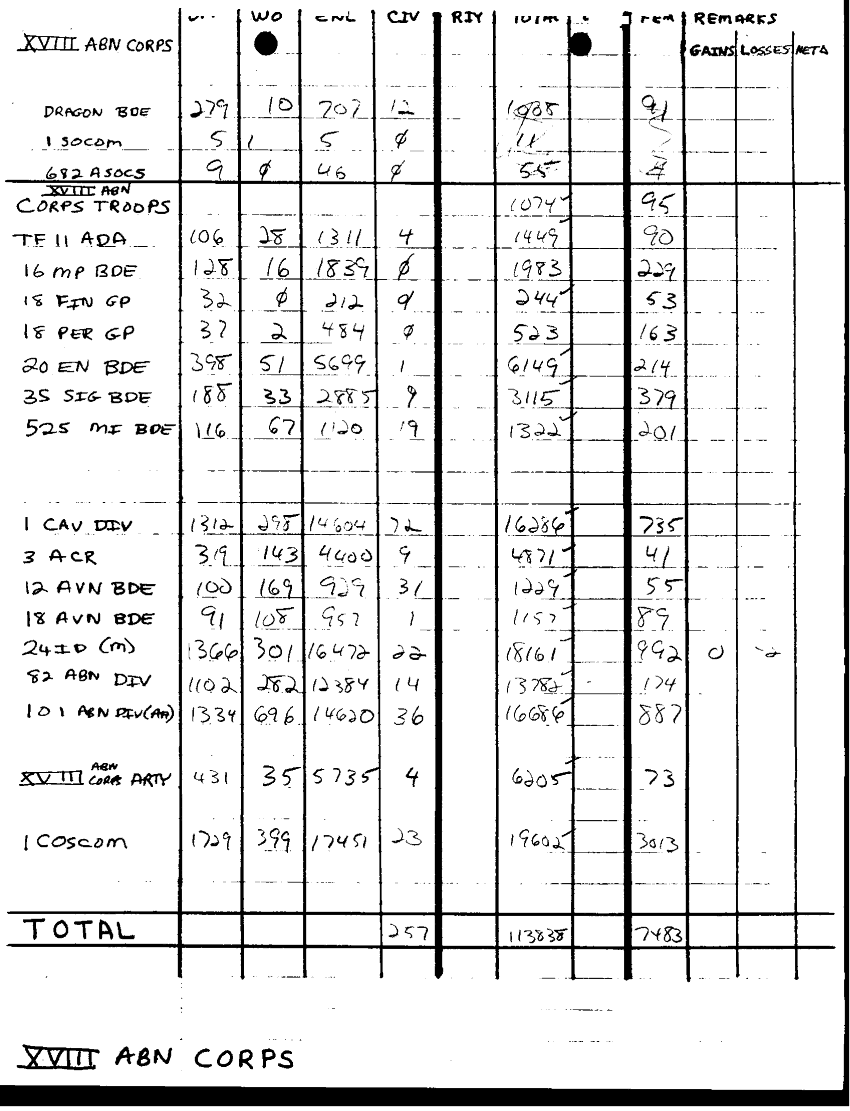 WO ENL CIV RIY TOTAL FEM REMARKS
XVIII ABN CORPS GAINS LOSSES META
DRAGON BDE 279 10 707 12 91
1 SOCOM 5 1 5 φ 11
682 ASOCS 9 φ 46 φ 55
XVIII ABN
CORPS TROOPS 1074 95
TF 11 ADA 106 28 1311 4 1449 90
16 MP BDE 128 16 1839 φ 1983 229
18 FIN GP 32 φ 212 φ 244 53
18 PER GP 37 2 484 φ 523 163
20 EN BDE 398 51 5699 1 6149 214
35 SIG BDE 188 33 2885 9 3115 379
525 MI BDE 116 67 1120 19 1322 201
1 CAV DIV 1312 298 14604 72 16286 735
3 ACR 319 143 4400 9 4871 41
12 AVN BDE 100 169 929 31 1229 55
18 AVN BDE 91 108 957 1 1157 89
24 ID (M) 1366 301 16472 22 18161 992 0 -2
82 ABN DIV 1102 282 12384 14 13782 174
101 ABN DIV (AA) 1334 696 14620 36 16686 887
XVIII ABN CORPS ARTY 431 35 5735 4 6205 73
1 COSCOM 1729 399 17451 23 19602 3013
TOTAL 257 113838 7483
XVIII ABN CORPS